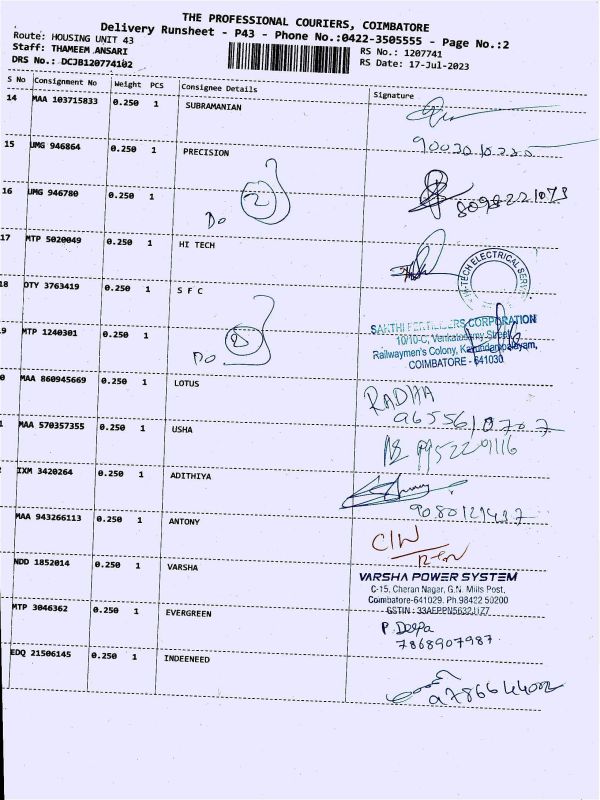 THE PROFESSIONAL COURIERS, COIMBATORE
Delivery Runsheet - P43 - Phone No.:0422-3505555 - Page No.:2
Route: HOUSING UNIT 43
Staff: THAMEEM ANSARI
DRS No.: DCJB120774102
RS No.: 1207741
RS Date: 17-Jul-2023
S No Consignment No Weight PCS Consignee Details Signature
14 MAA 103715833 0.250 1 SUBRAMANIAN
15 UMG 946864 0.250 1 PRECISION
16 UMG 946780 0.250 1 Do 2
17 MTP 5020049 0.250 1 HI TECH
HI-TECH ELECTRICAL
18 OTY 3763419 0.250 1 S F C
SAKTHI FERTILIZERS CORPORATION
10/10-C, Venkatusamy Street,
Railwaymen's Colony, Karundampalayam,
COIMBATORE - 641030
9 MTP 1240301 0.250 1 Do 2
0 MAA 860945669 0.250 1 LOTUS
RADHA
9655610707
1 MAA 570357355 0.250 1 USHA
9952209116
IXM 3420264 0.250 1 ADITHIYA
MAA 943266113 0.250 1 ANTONY
C/N
NDD 1852014 0.250 1 VARSHA
VARSHA POWER SYSTEM
C-15, Cheran Nagar, G.N. Mills Post,
Coimbatore-641029. Ph.98422 50200
GSTIN : 33AEPPN5632J1Z7
MTP 3046362 0.250 1 EVERGREEN
P. Deepa
7868907987
EDQ 21506145 0.250 1 INDEENEED